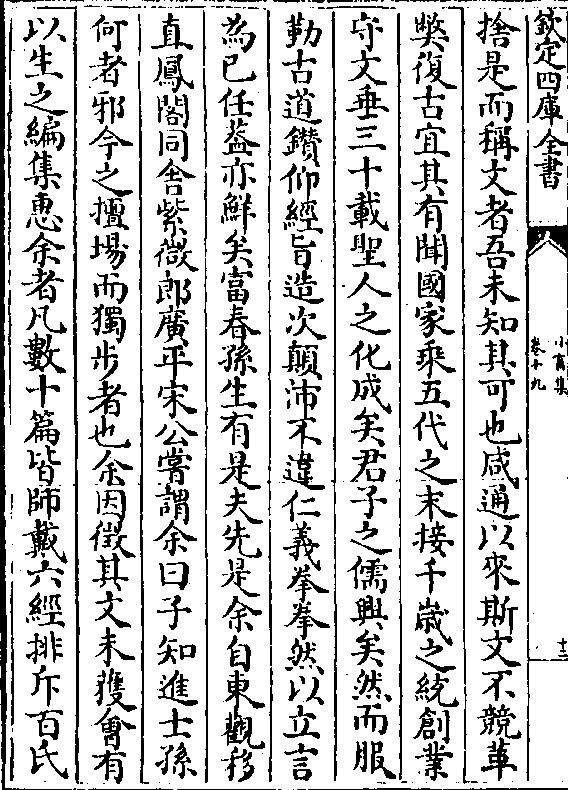 欽定四庫全書
小畜集
卷十九
十三
捨是而稱文者吾未知其可也咸通以來斯文不競革
獘復古宜其有聞國家乘五代之末接千嵗之統創業
守文垂三十載聖人之化成矣君子之儒興矣然而服
勤古道鑽仰經旨造次顛沛不違仁義拳拳然以立言
為已任葢亦鮮矣富春孫生有是夫先是余自東觀移
直鳳閣同舍紫微郎廣平宋公嘗謂余曰子知進士孫
何者邪今之擅場而獨步者也余因徴其文未獲會有
以生之編集惠余者凡數十篇皆師戴六經排斥百氏